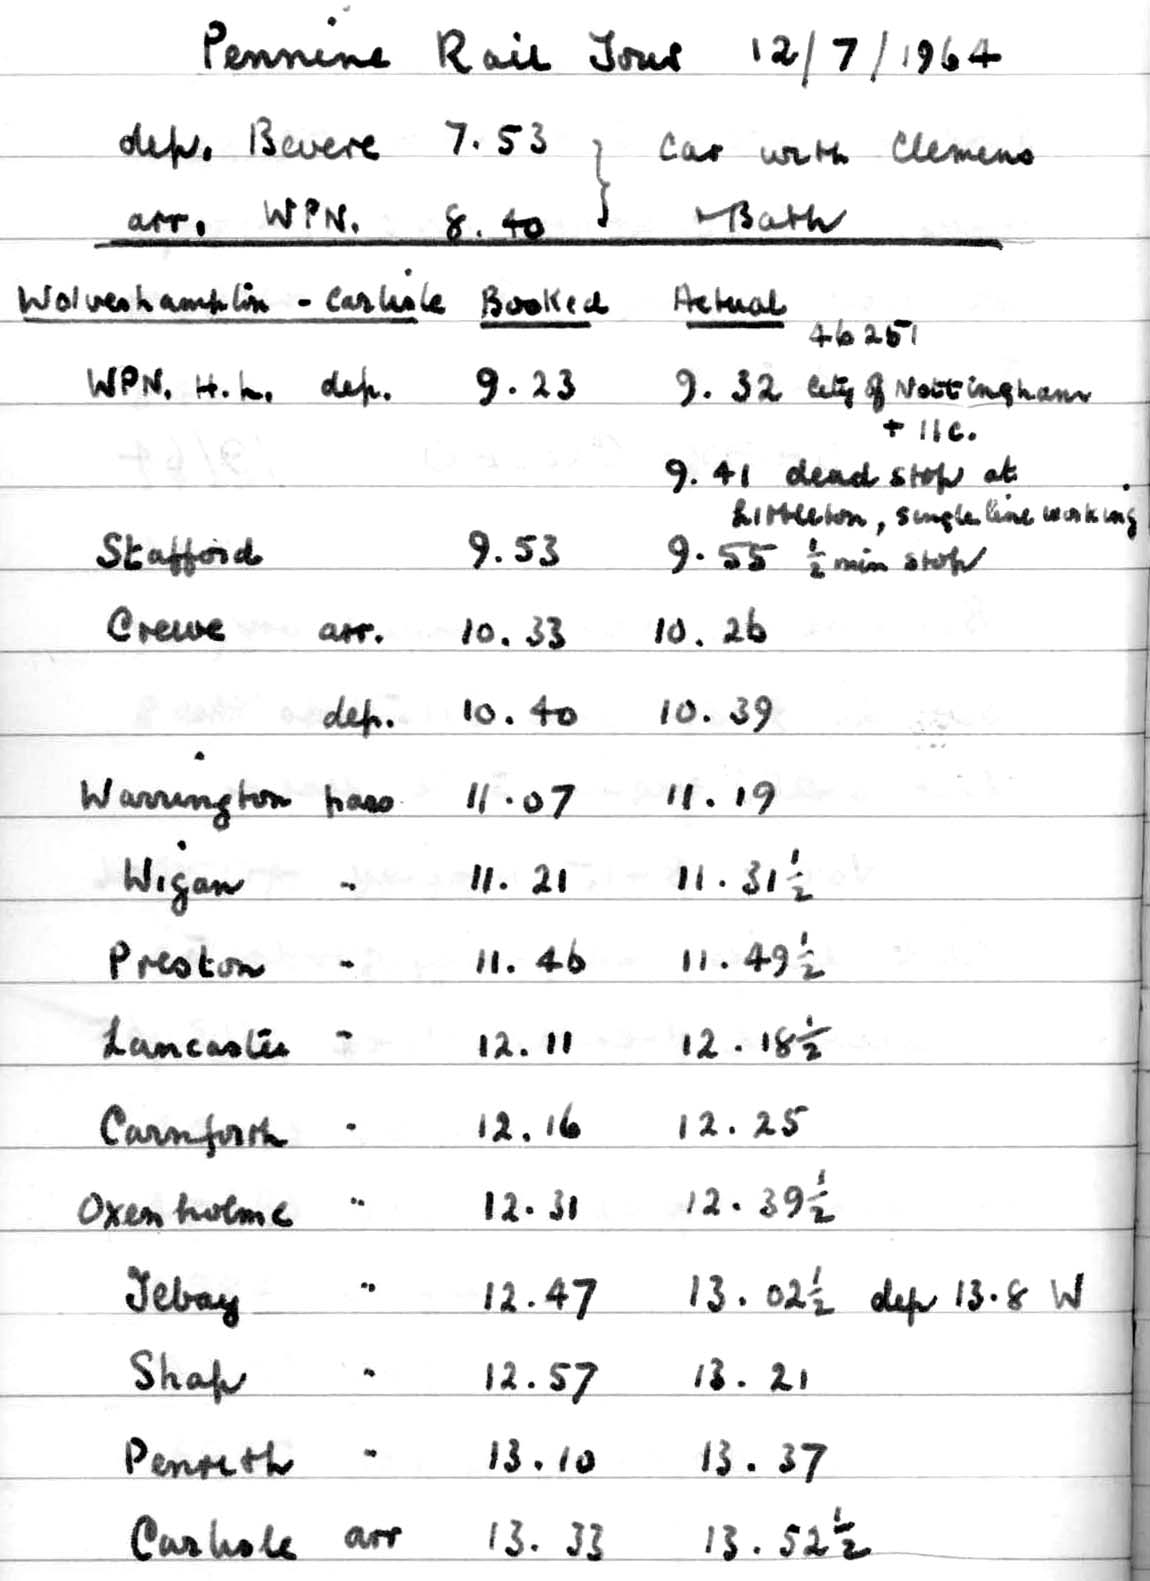 Pennine Rail Tour 12/7/1964
dep. Bevere 7.53 } Car with Clemens
arr. WPN. 8.40 + Bath
Wolverhamptin - Carlisle Booked Actual
46251
WPN. H.L. dep. 9.23 9.32 City of Nottingham
+ 11c.
9.41 dead stop at
Littleton, single line working
Stafford 9.53 9.55 ½ min stop
Crewe arr. 10.33 10.26
dep. 10.40 10.39
Warrington pass 11.07 11.19
Wigan " 11.21 11.31½
Preston " 11.46 11.49½
Lancaster " 12.11 12.18½
Carnforth " 12.16 12.25
Oxenholme " 12.31 12.39½
Tebay " 12.47 13.02½ dep 13.8 W
Shap " 12.57 13.21
Penrith " 13.10 13.37
Carlisle arr 13.33 13.52½